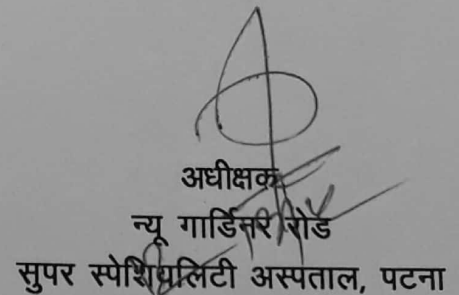 अधीक्षक
न्यू गार्डिनर रोड
सुपर स्पेशियलिटी अस्पताल, पटना